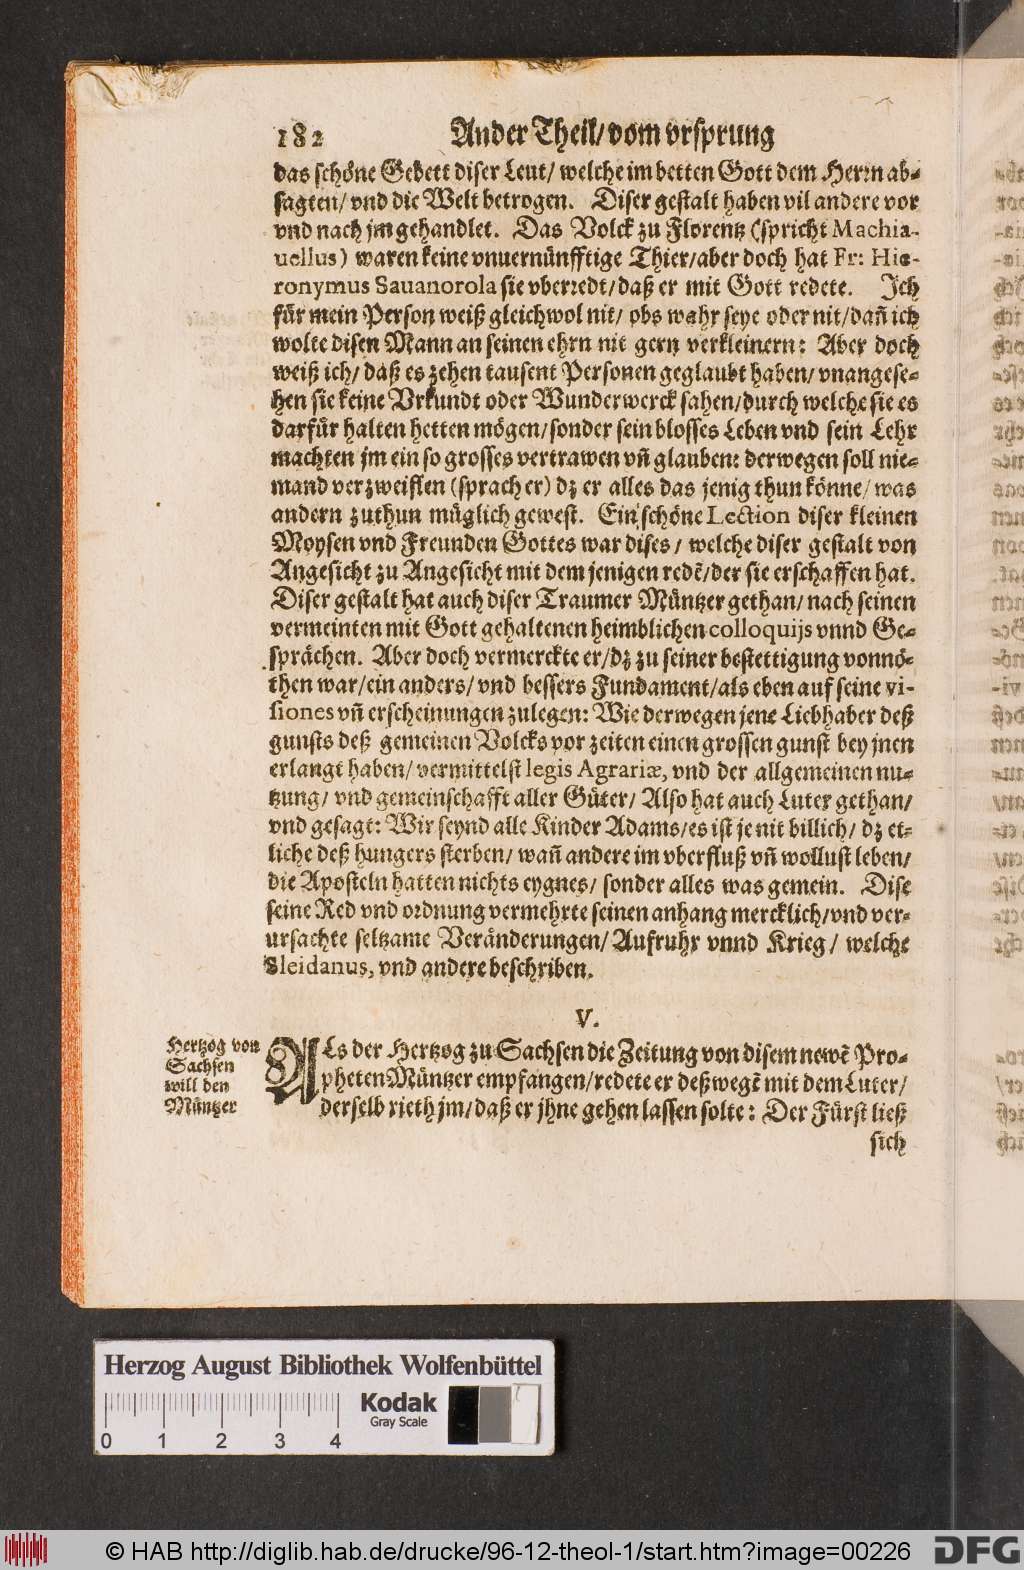 182 Ander Theil/ vom vrsprung
das schöne Gebett diser Leut/ welche im betten Gott dem Herrn ab-
sagten/ vnd die Welt betrogen. Diser gestalt haben vil andere vor
vnd nach jm gehandlet. Das Volck zu Florentz (spricht Machia-
uellus) waren keine vnuernünfftige Thier/ aber doch hat Fr: Hie-
ronymus Sauanorola sie vberredt/ daß er mit Gott redete. Ich
für mein Person weiß gleichwol nit/ obs wahr seye oder nit/ dañ ich
wolte disen Mann an seinen ehrn nit gern verkleinern: Aber doch
weiß ich/ daß es zehen tausent Personen geglaubt haben/ vnangese-
hen sie keine Vrkundt oder Wunderwerck sahen/ durch welche sie es
darfür halten hetten mögen/ sonder sein blosses Leben vnd sein Lehr
machten jm ein so grosses vertrawen vñ glauben: derwegen soll nie-
mand verzweiflen (sprach er) dz er alles das jenig thun könne/ was
andern zuthun müglich gewest. Ein schöne Lection diser kleinen
Moysen vnd Freunden Gottes war dises/ welche diser gestalt von
Angesicht zu Angesicht mit dem jenigen redẽ/ der sie erschaffen hat.
Diser gestalt hat auch diser Traumer Müntzer gethan/ nach seinen
vermeinten mit Gott gehaltenen heimblichen colloquijs vnnd Ge-
sprächen. Aber doch vermerckte er/ dz zu seiner bestettigung vonnö-
then war/ ein anders/ vnd bessers Fundament/ als eben auf seine vi-
siones vñ erscheinungen zulegen: Wie derwegen jene Liebhaber deß
gunsts deß gemeinen Volcks vor zeiten einen grossen gunst bey jnen
erlangt haben/ vermittelst legis Agrariæ, vnd der allgemeinen nu-
tzung/ vnd gemeinschafft aller Güter/ Also hat auch Luter gethan/
vnd gesagt: Wir seynd alle Kinder Adams/ es ist je nit billich/ dz et-
liche deß hungers sterben/ wañ andere im vberfluß vñ wollust leben/
die Aposteln hatten nichts eygnes/ sonder alles was gemein. Dise
seine Red vnd ordnung vermehrte seinen anhang mercklich/ vnd ver-
ursachte seltzame Veränderungen/ Aufruhr vnnd Krieg/ welche
Sleidanus, vnd andere beschriben.
V.
Hertzog von
Sachsen
will den
Müntzer
ALs der Hertzog zu Sachsen die Zeitung von disem newẽ Pro-
pheten Müntzer empfangen/ redete er deßwegẽ mit dem Luter/
derselb rieth jm/ daß er jhne gehen lassen solte: Der Fürst ließ
sich
Herzog August Bibliothek Wolfenbüttel
Kodak
Gray Scale
0 1 2 3 4
© HAB http://diglib.hab.de/drucke/96-12-theol-1/start.htm?image=00226
DFG